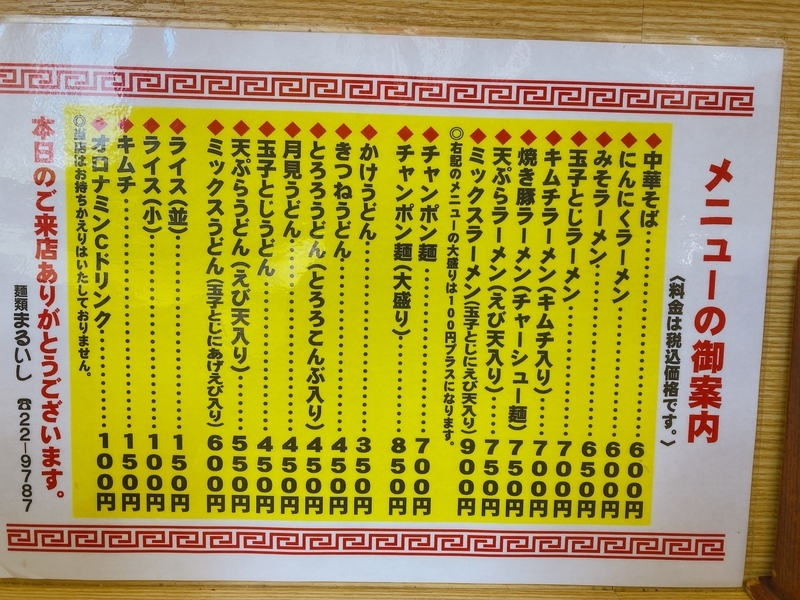 メニューの御案内
〈料金は税込価格です。〉
◆中華そば……………600円
◆にんにくラーメン……………600円
◆みそラーメン……………650円
◆玉子とじラーメン……………700円
◆キムチラーメン(キムチ入り)……700円
◆焼き豚ラーメン(チャーシュー麺)…750円
◆天ぷらラーメン(えび天入り)……750円
◆ミックスラーメン(玉子とじにえび天入り)900円
◎右記のメニューの大盛りは100円プラスになります。
◆チャンポン麺……………700円
◆チャンポン麺(大盛り)……………850円
◆かけうどん……………350円
◆きつねうどん……………450円
◆とろろうどん(とろろこんぶ入り)…450円
◆月見うどん……………450円
◆玉子とじうどん……………450円
◆天ぷらうどん(えび天入り)………550円
◆ミックスうどん(玉子とじにあげえび入り)600円
◆ライス(並)……………150円
◆ライス(小)……………100円
◆キムチ……………150円
◆オロナミンCドリンク……………100円
◎当店はお持ちかえりはいたしておりません。
本日のご来店ありがとうございます。
麺類まるいし ☎22―9787